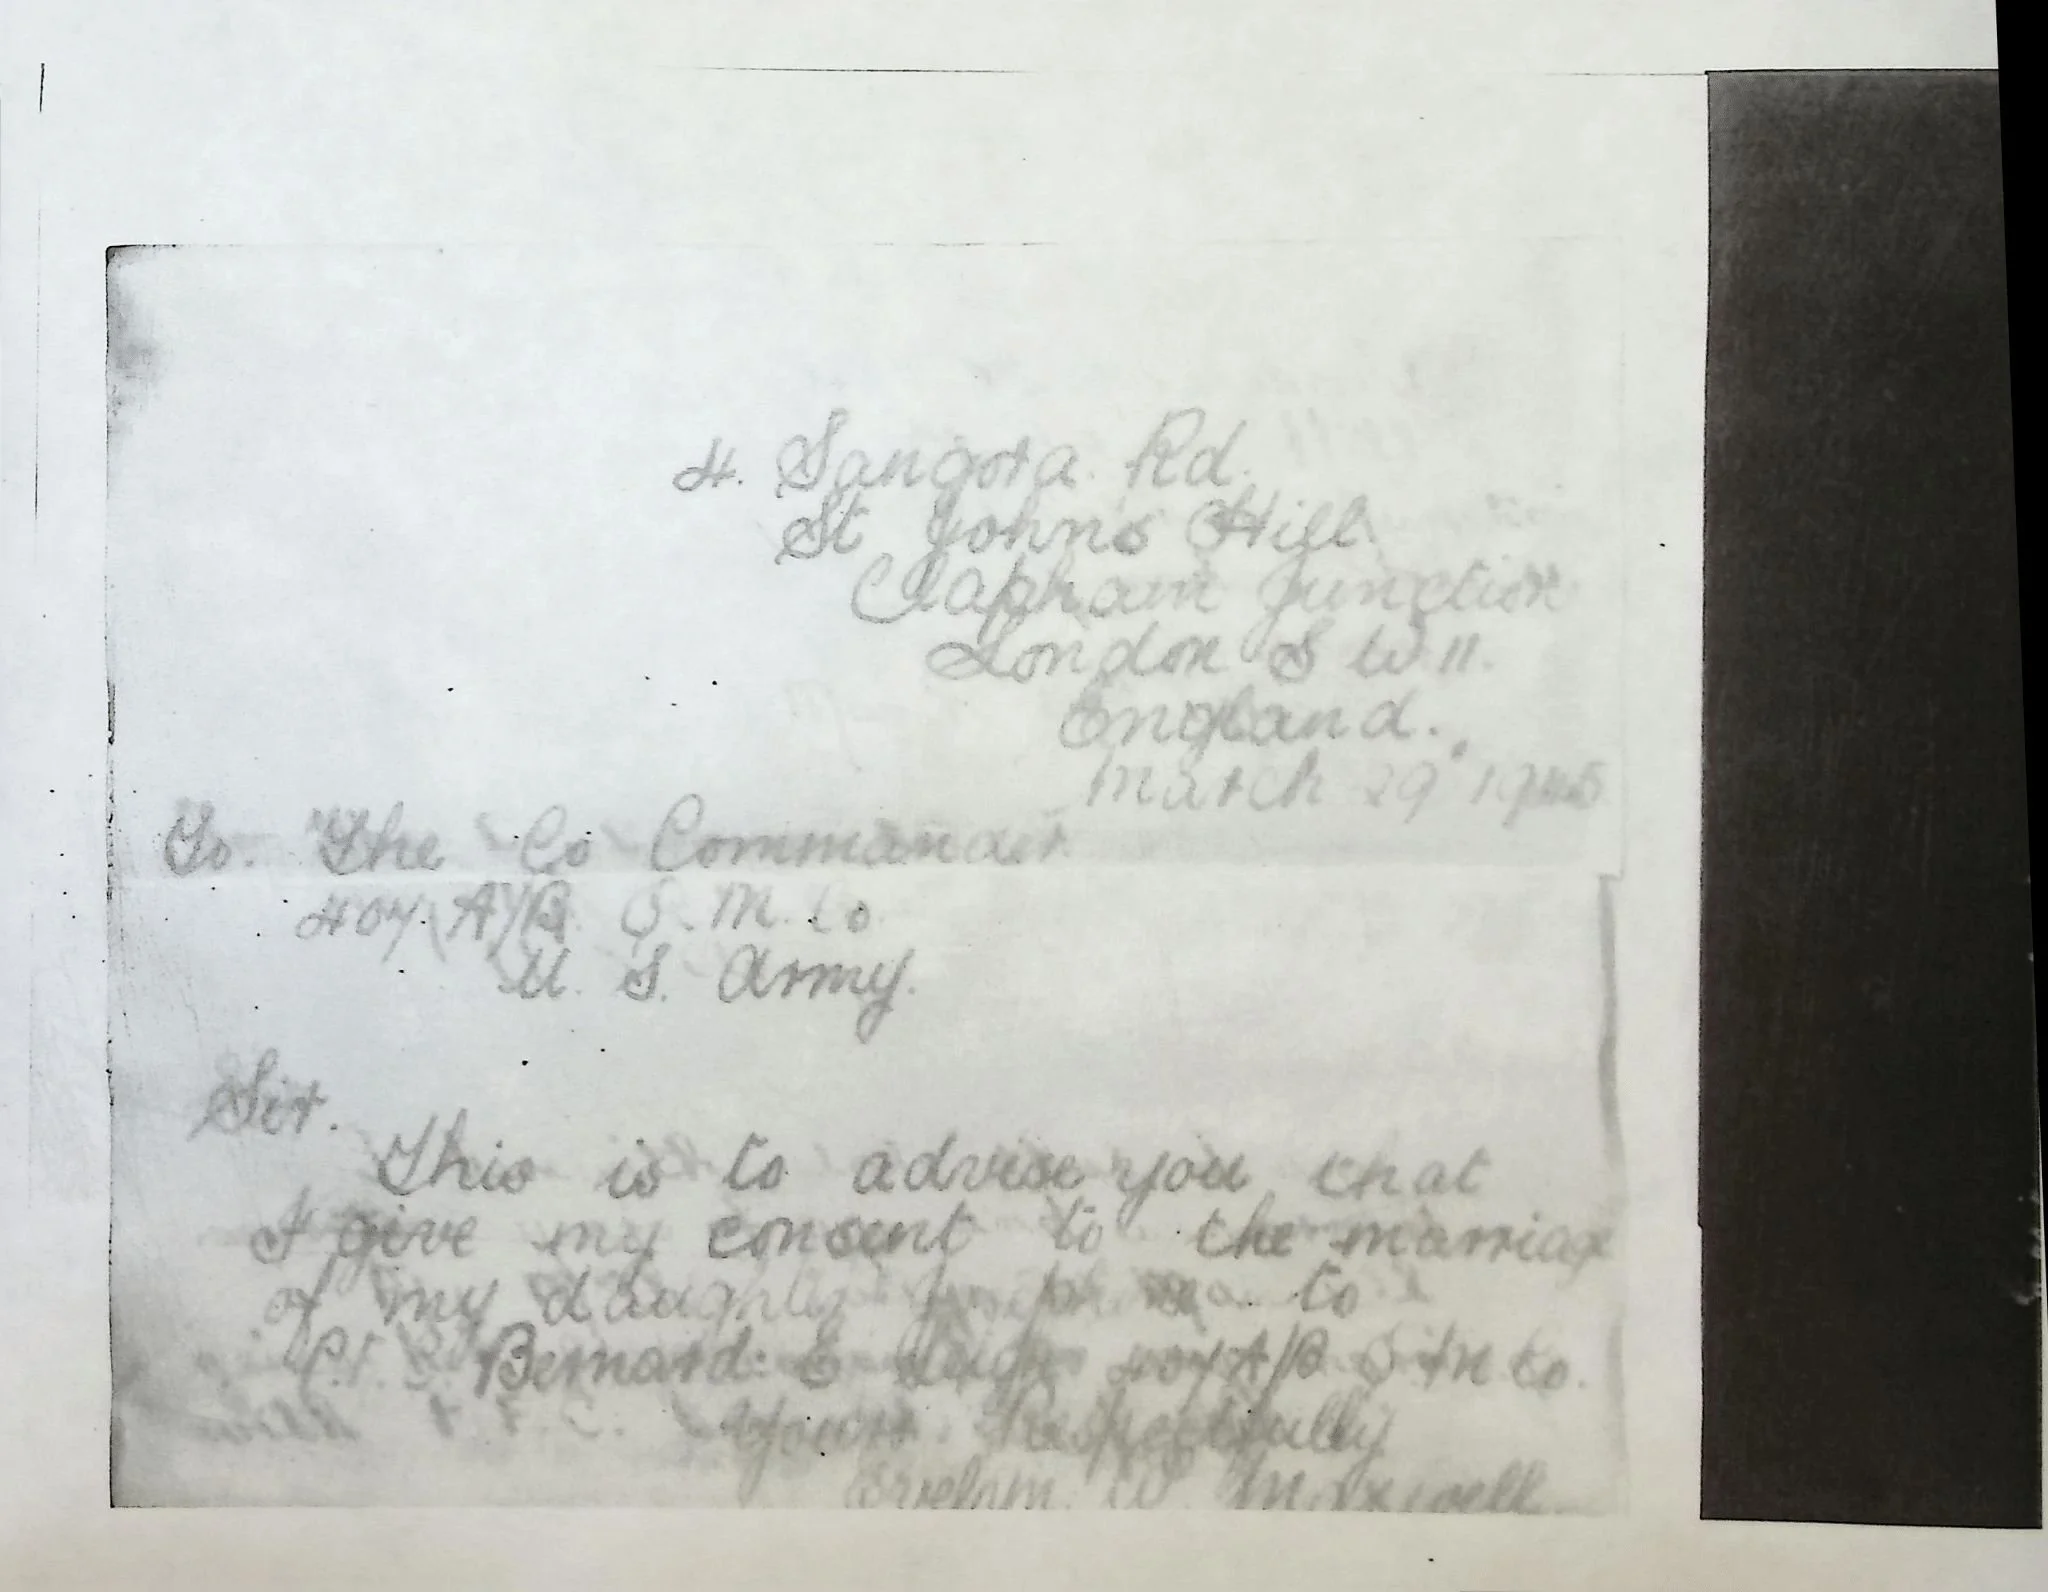 4. Sangora Rd.
St Johns Hill
Clapham Junction
London S W 11.
England.
March 29" 1945
To. The Co Commander
407 A/B. Q. M. Co.
U. S. Army.
Sir.
This is to advise you that
I give my consent to the marriage
of my daughter Josephine to
Bernard. E 407 A/B Q M Co.
Yours. Respectfully
W. Maxwell